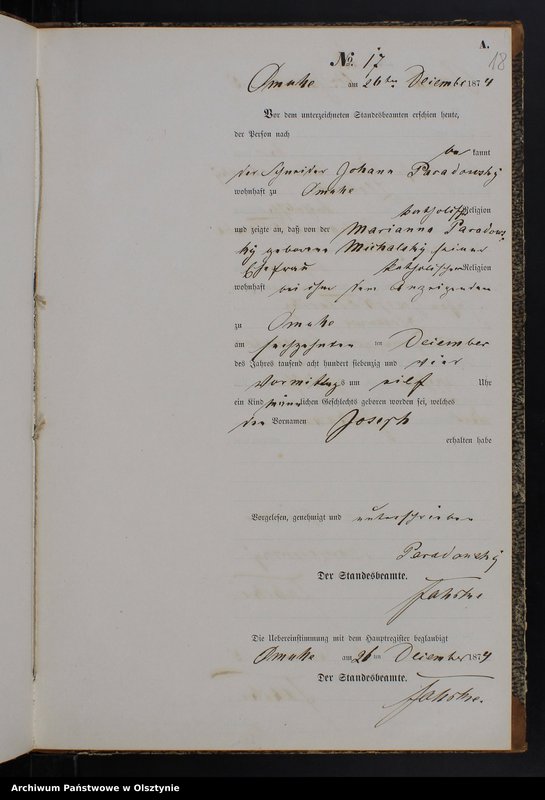 A.
18
№ 17
Omule am 26ten Dezember 1874
Vor dem unterzeichneten Standesbeamten erschien heute,
der Person nach
be kannt
der Schneider Johann Paradowsky
wohnhaft zu Omule
katholisch Religion
und zeigte an, daß von der Marianna Paradows-
ky geborene Michalsky seiner
Ehefrau katholischen Religion
wohnhaft bei ihm dem Anzeigenden
zu Omule
am sechszehnten ten Dezember
des Jahres tausend acht hundert siebenzig und vier
Vormittags um eilf Uhr
ein Kind männlichen Geschlechts geboren worden sei, welches
den Vornamen Joseph
erhalten habe
Vorgelesen, genehmigt und unterschrieben
Paradowsky
Der Standesbeamte.
Die Uebereinstimmung mit dem Hauptregister beglaubigt
Omule am 26 ten Dezember 1874
Der Standesbeamte.
Archiwum Państwowe w Olsztynie